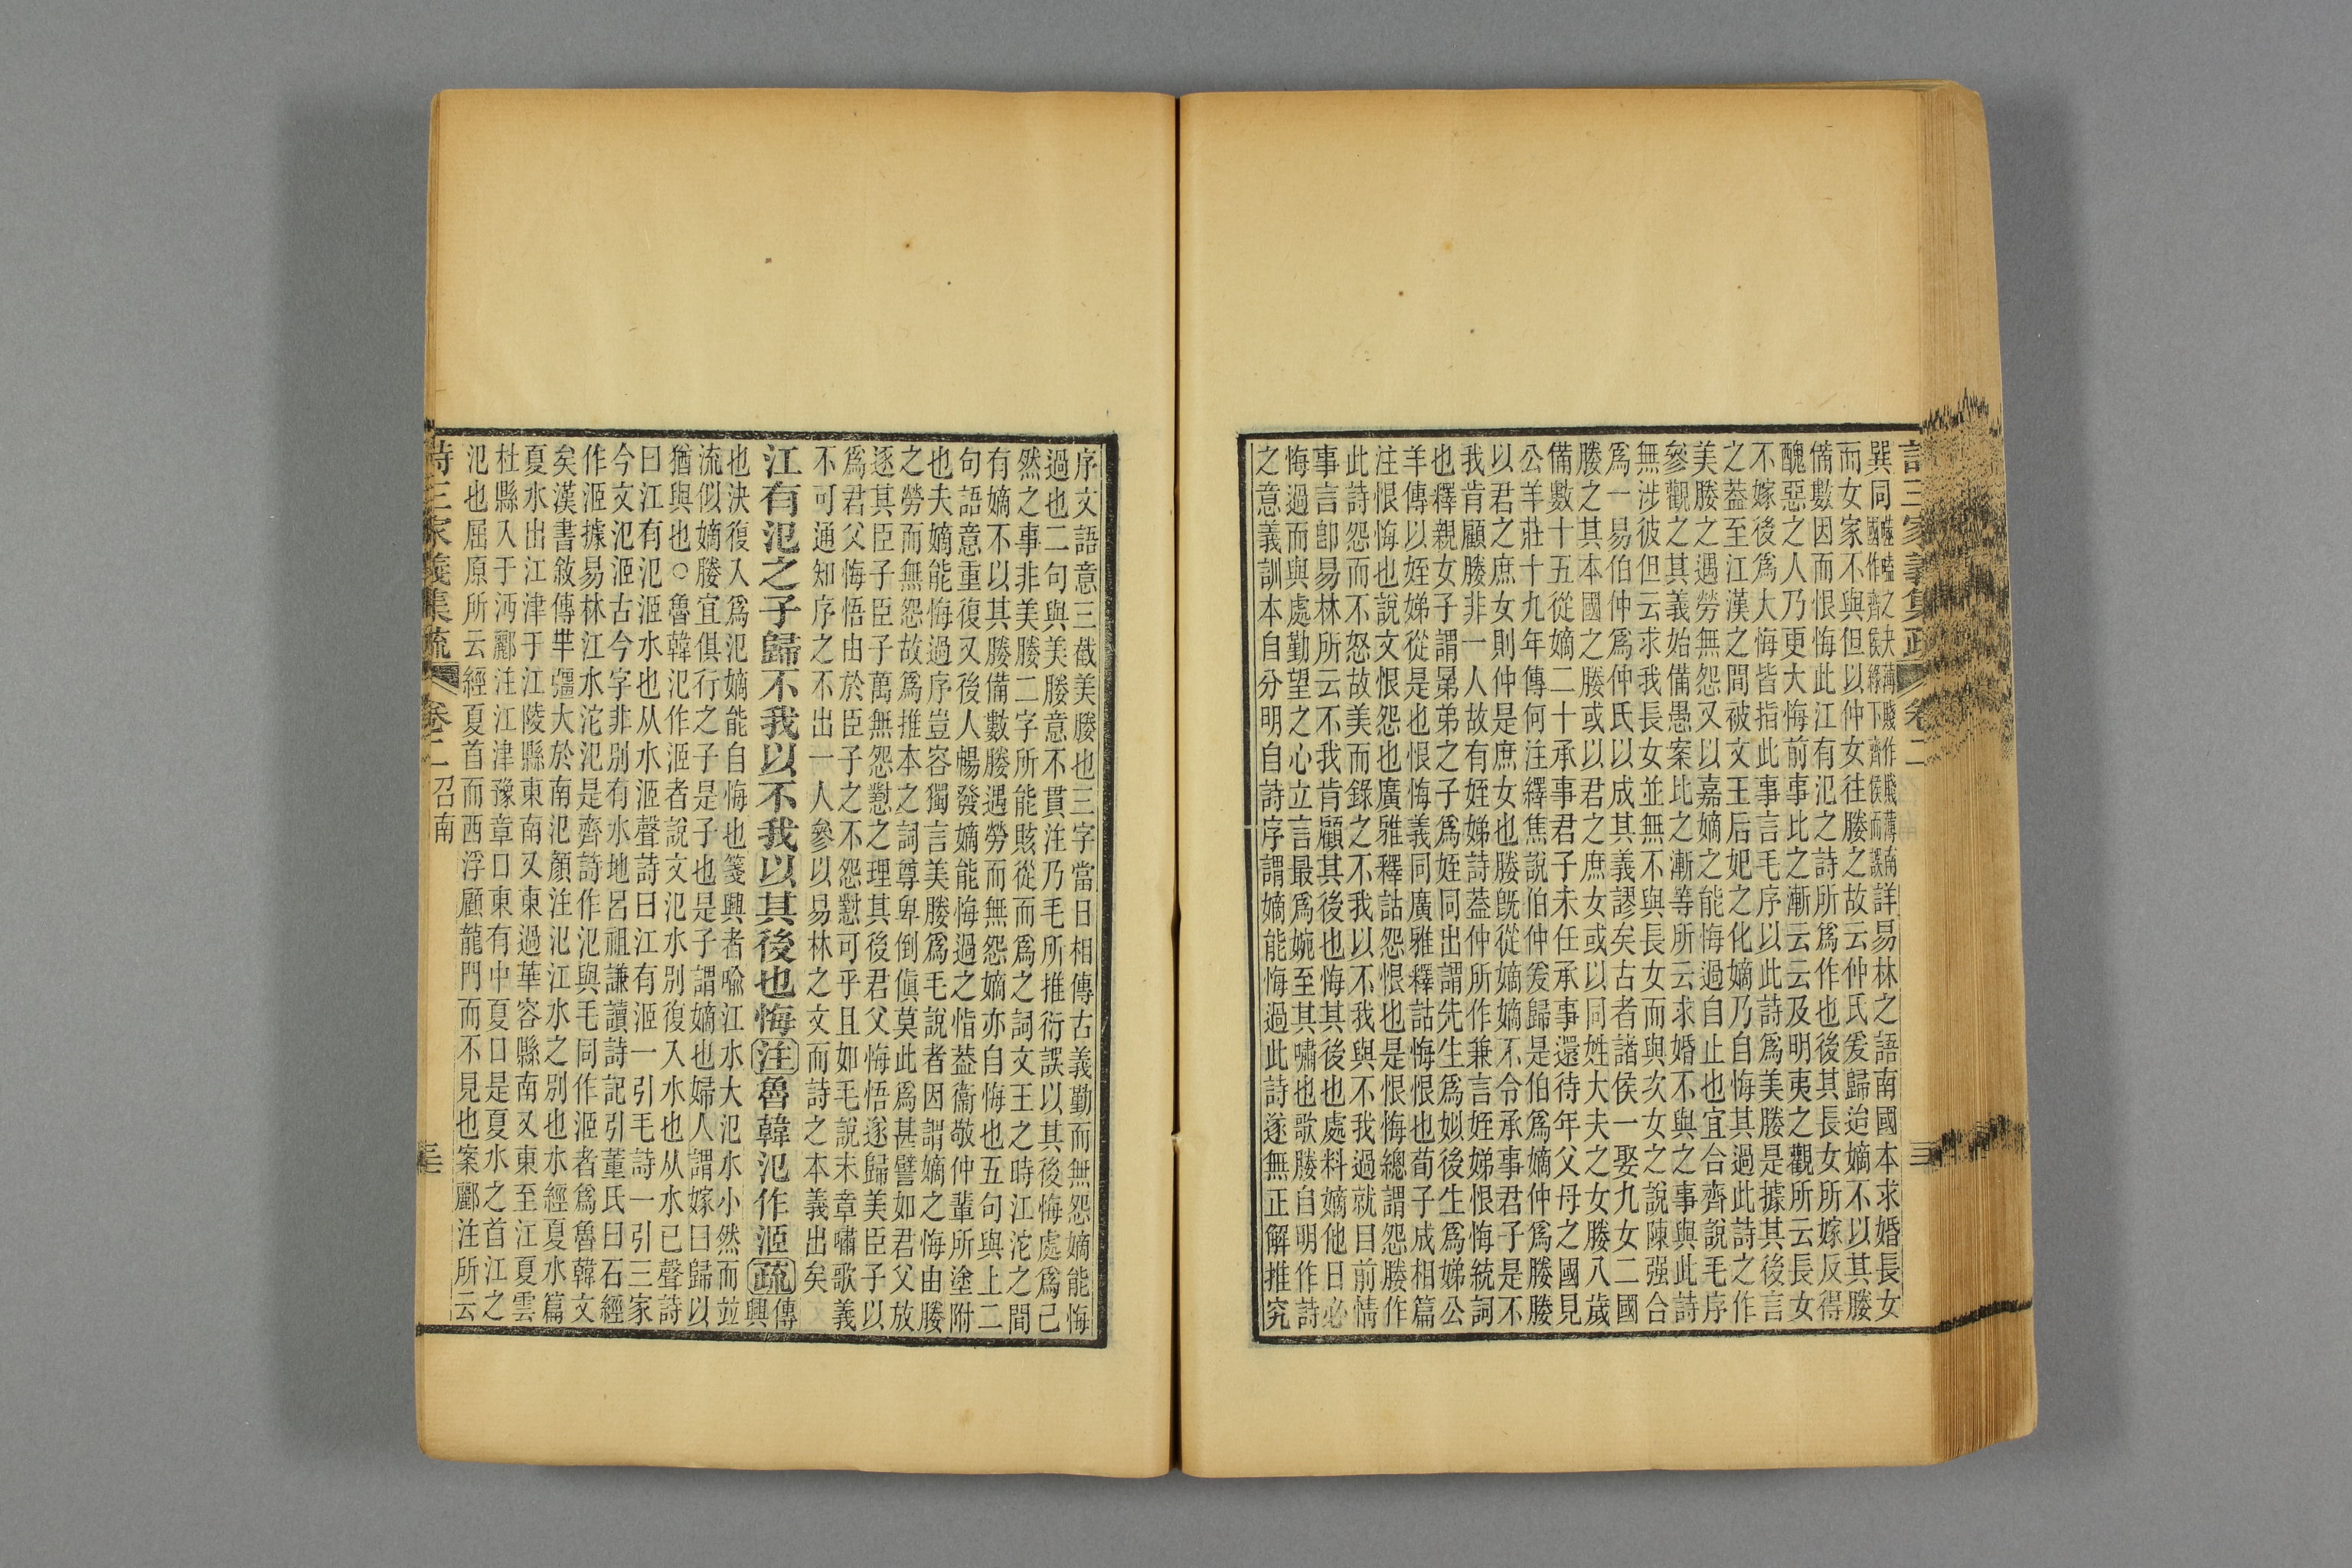 詩三家義集疏 卷二
巽同噬嗑之夬萬賤作賤薄南國作齊侯緣下齊侯而誤詳易林之語南國本求婚長女
而女家不與但以仲女往媵之故云仲氏爰歸迨嫡不以其媵
備數因而恨悔此江有汜之詩所爲作也後其長女所嫁反得
醜惡之人乃更大悔前事此之漸云云及明夷之觀所云長女
不嫁後爲大悔皆指此事言毛序以此詩爲美媵是據其後言
之蓋至江漢之間被文王后妃之化嫡乃自悔其過此詩之作
美媵之遇勞無怨又以嘉嫡之能悔過自止也宜合齊說毛序
參觀之其義始備愚案比之漸等所云求婚不與之事與此詩
無涉彼但云求我長女並無不與長女而與次女之說陳强合
爲一易伯仲爲仲氏以成其義謬矣古者諸侯一娶九女二國
媵之其本國之媵或以君之庶女或以同姓大夫之女媵八歲
備數十五從嫡二十承事君子未任承事還待年父母之國見
公羊莊十九年傳何注繹焦說伯仲爰歸是伯爲嫡仲爲媵媵
以君之庶女則仲是庶女也媵旣從嫡嫡不令承事君子是不
我肯顧媵非一人故有姪娣詩蓋仲所作兼言姪娣恨悔統詞
也釋親女子謂晜弟之子爲姪同出謂先生爲姒後生爲娣公
羊傳以姪娣從是也恨悔義同廣雅釋詁悔恨也荀子成相篇
注恨悔也說文恨怨也廣雅釋詁怨恨也是恨悔總謂怨媵作
此詩怨而不怒故美而錄之不我以不我與不我過就目前情
事言卽易林所云不我肯顧其後也悔其後也處料嫡他日必
悔過而與處勤望之心立言最爲婉至其嘯也歌媵自明作詩
之意義訓本自分明自詩序謂嫡能悔過此詩遂無正解推究
序文語意三截美媵也三字當日相傳古義勤而無怨嫡能悔
過也二句與美媵意不貫注乃毛所推衍誤以其後悔處爲已
然之事非美媵二字所能賅從而爲之詞文王之時江沱之間
有嫡不以其媵備數媵遇勞而無怨嫡亦自悔也五句與上二
句語意重復又後人暢發嫡能悔過之恉蓋衞敬仲輩所塗附
也夫嫡能悔過序豈容獨言美媵爲毛說者因謂嫡之悔由媵
之勞而無怨故爲推本之詞尊卑倒傎莫此爲甚譬如君父放
逐其臣子臣子萬無怨懟之理其後君父悔悟遂歸美臣子以
爲君父悔悟由於臣子之不怨懟可乎且如毛說末章嘯歌義
不可通知序之不出一人參以易林之文而詩之本義出矣
江有汜之子歸不我以不我以其後也悔注魯韓汜作洍疏傳興
也決復入爲汜嫡能自悔也箋興者喻江水大汜水小然而並
流似嫡媵宜俱行之子是子也是子謂嫡也婦人謂嫁曰歸以
猶與也○魯韓汜作洍者說文汜水別復入水也从水巳聲詩
曰江有汜洍水也从水洍聲詩曰江有洍一引毛詩一引三家
今文汜洍古今字非別有水地呂祖謙讀詩記引董氏曰石經
作洍據易林江水沱汜是齊詩作汜與毛同作洍者爲魯韓文
矣漢書敘傳芈彊大於南汜顏注汜江水之別也水經夏水篇
夏水出江津于江陵縣東南又東過華容縣南又東至江夏雲
杜縣入于沔酈注江津豫章口東有中夏口是夏水之首江之
汜也屈原所云經夏首而西浮顧龍門而不見也案酈注所云
詩三家義集疏 卷二 召南